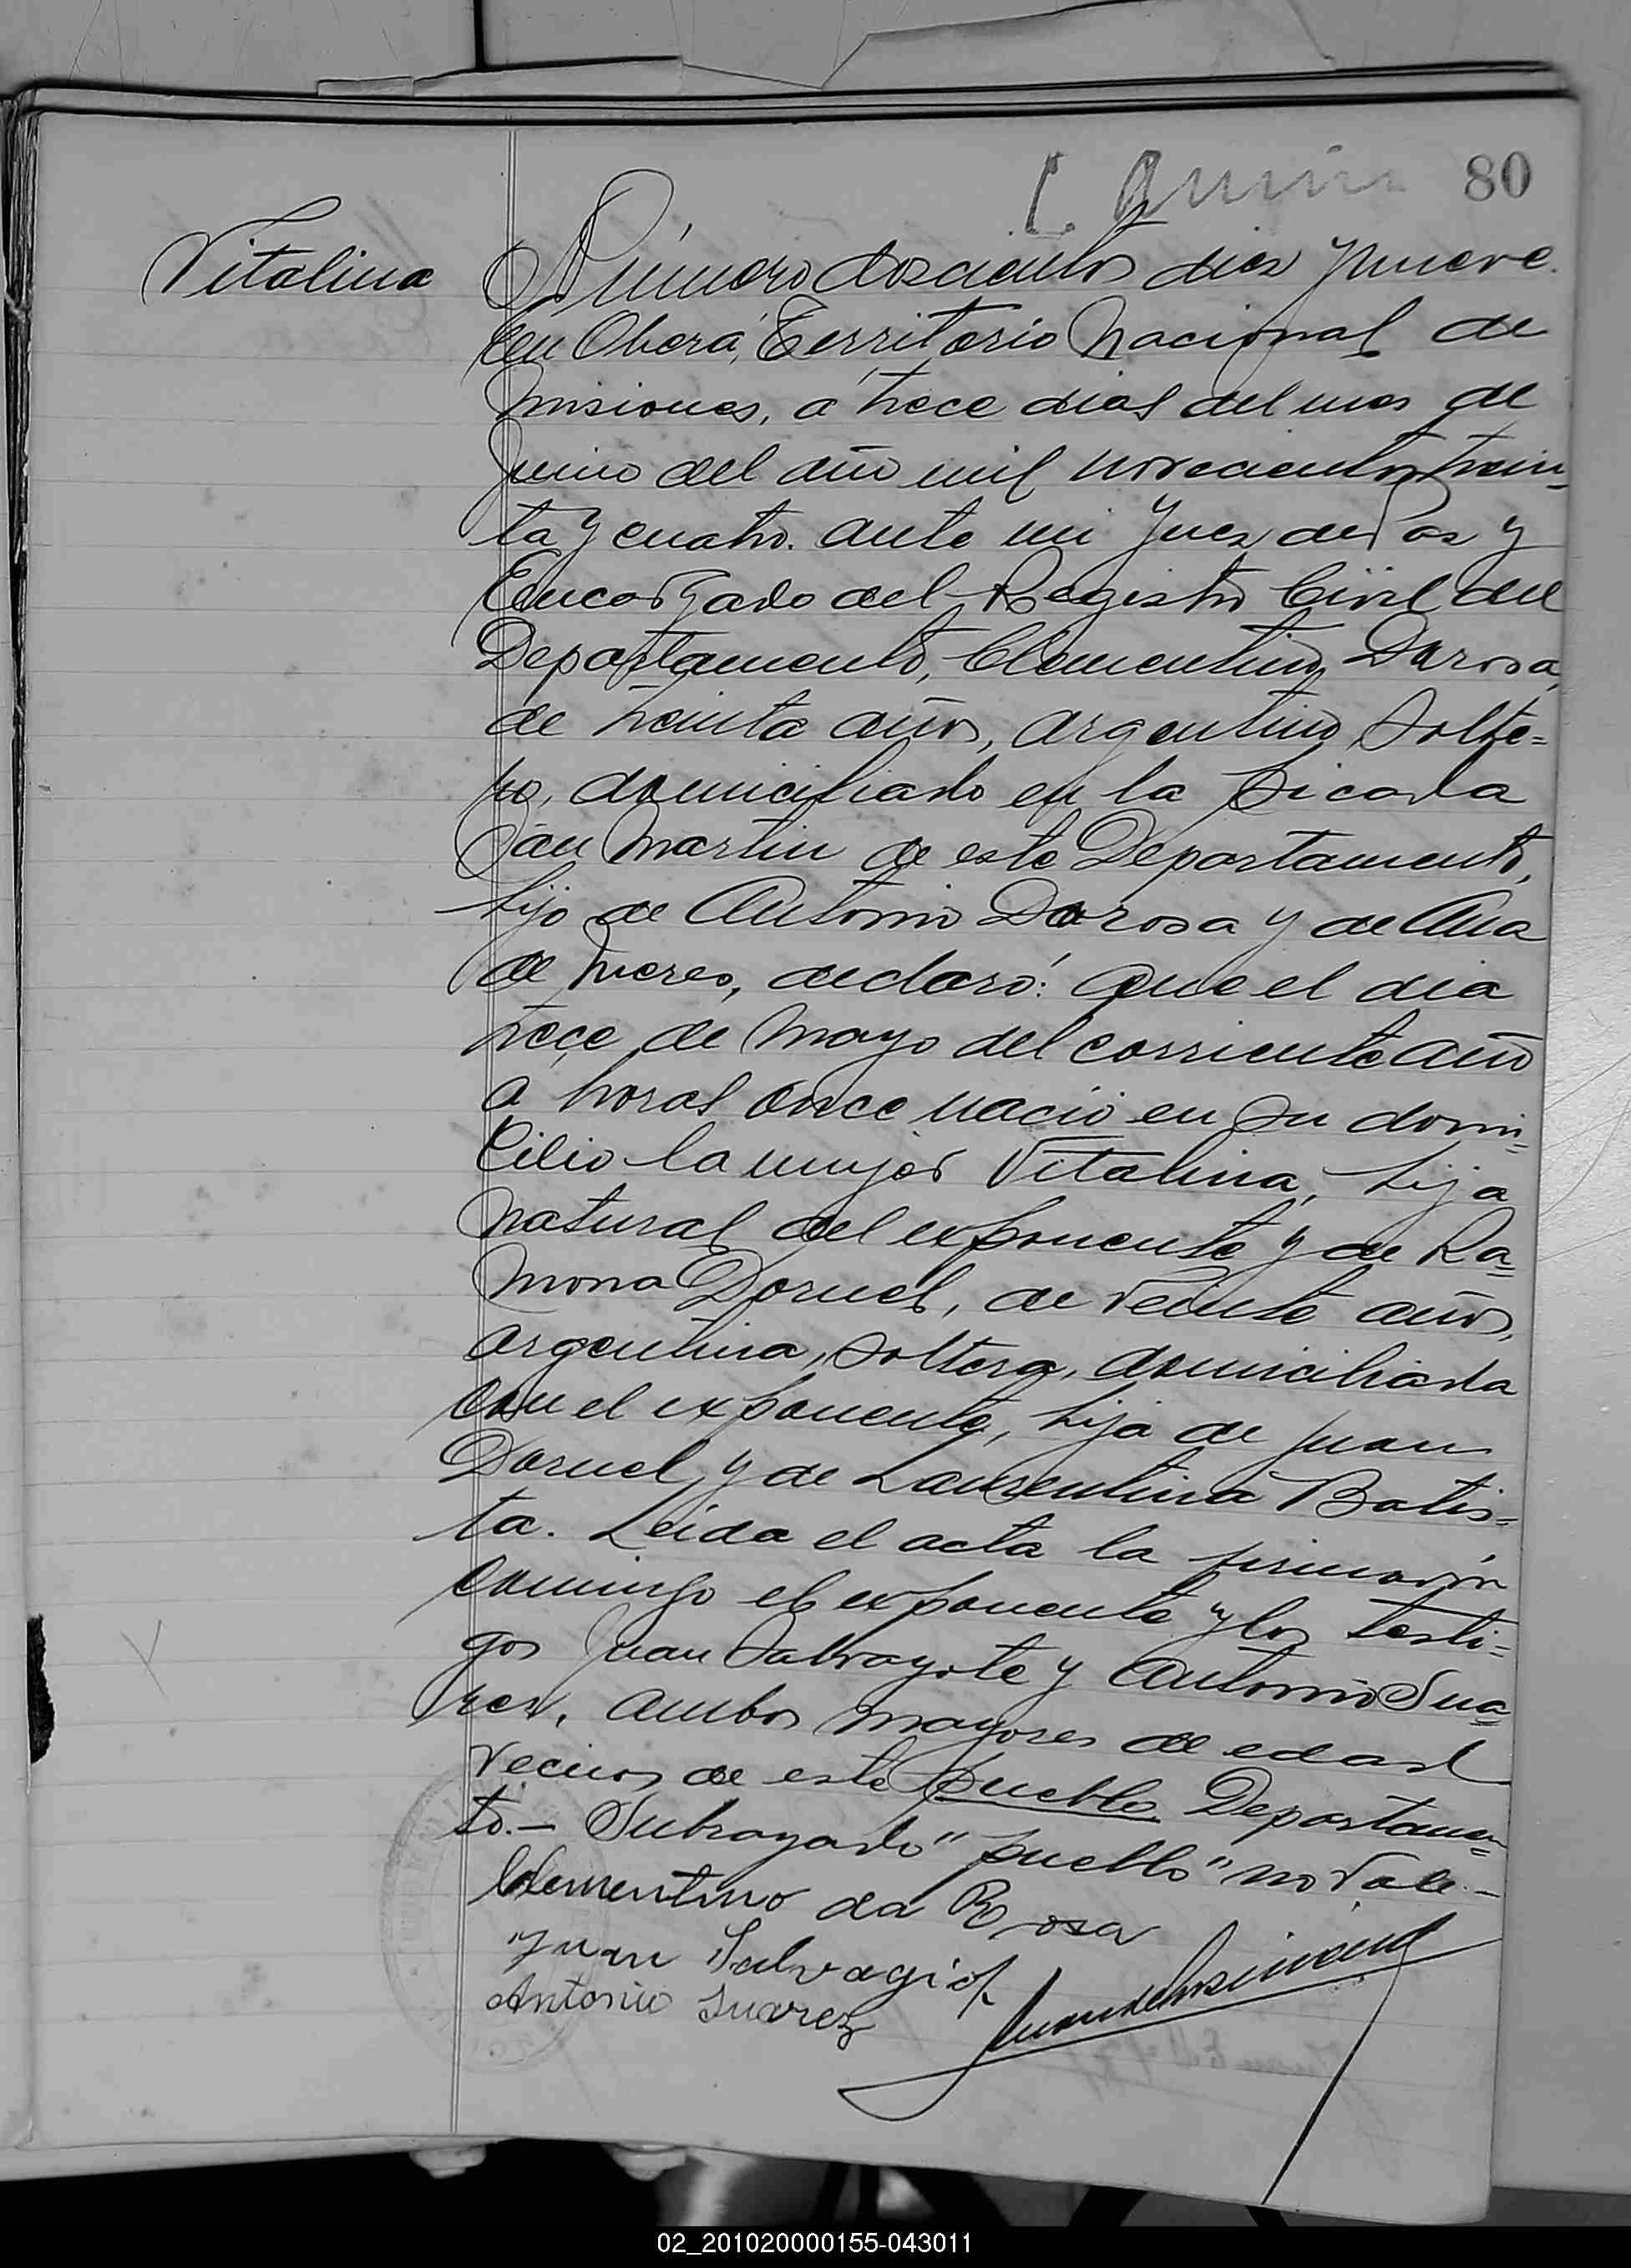 80
Vitalina
Número doscientos diez y nueve.
En Oberá, Territorio Nacional de
Misiones, a trece dias del mes de
Junio del año mil novecientos trein=
ta y cuatro. ante mi Juez de Paz y
Encargado del Registro Civil del
Departamento, Clementino Darosa,
de treinta años, argentino, solte=
ro, domiciliado en la picada
San Martin de este Departamento,
hijo de Antonio Darosa y de Ana
de declaró: Que el dia
trece de Mayo del corriente año
a horas once nació en su domi=
cilio la mujer Vitalina, hija
natural del exponente y de Ra=
mona Dornel, de veinte años,
argentina, soltera, domiciliada
con el exponente, hija de Juan
Dornel y de Laurentina Batis=
ta. Leida el acta la firmaron
conmigo el exponente y los testi=
gos Juan y Antonio Sua=
rez, ambos mayores de edad
vecinos de este pueblo Departamen=
to.- Subrayado "pueblo" no vale.-
Clementino da Rosa
Juan Salvagiot
Antonio Suarez
02_201020000155-043011